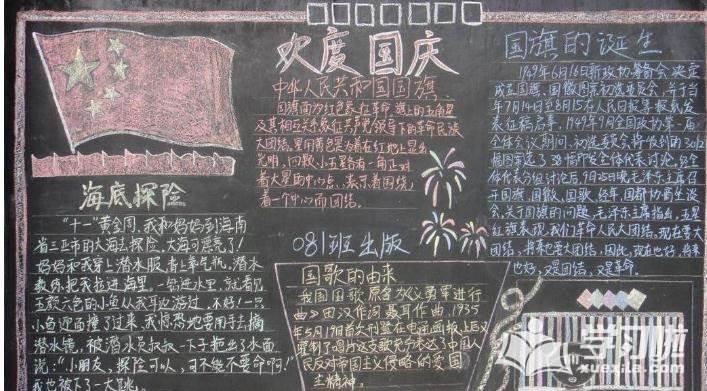 欢度国庆
中华人民共和国国旗
国旗面为红色象征革命,旗上的五角星
及其相互关系象征共产党领导下的革命民族
大团结,星用黄色是为着在红地上显出
光明,四颗小五星各有一角正对
着大星的中心点,表示着围绕
着一个中心而团结。
海底探险
"十一"黄金周,我和妈妈到海南
省三亚市的大海去探险,大海可漂亮了!
妈妈和我穿上潜水服,背上氧气瓶,潜水
教练把我拉进海里,一钻进水里,就看见
五颜六色的小鱼从我耳边游过,不好!一只
小鱼迎面撞了过来,我惊恐地要用手去摘
潜水镜,被潜水员叔叔一下子拖出了水面
说:"小朋友,探险可以,可不能不要命啊!"
我也被下了一大跳。
081班出版
国歌的由来
我国国歌原名《义勇军进行
曲》田汉作词聂耳作曲,1935
年5月19日首次刊登在电通画报上后又
录制了唱片这支歌充分表达了中国人
民反对帝国主义侵略的爱国
主精神。
国旗的诞生
1949年6月16日新政协筹备会决定
成立国旗、国徽图案初选委员会,并于当
年7月14日至8月15在人民日报等报刊发
表征稿启事,1949年9月全国政协第一届
全体会议期间,初选委员会将收到的3012
幅图案选了38幅印发全体代表讨论,经全
体代表分组讨论后,9月25日晚毛泽东主席召
开国旗、国徽、国歌、纪年、国都协商座谈
会,关于国旗的问题,毛泽东主席指出,五星
红旗表现,我们革命人民大团结。现在要大
团结,将来也要大团结,因此,现在也好,将来
也好,又是团结,又是革命。
学习啦
xuexila.com